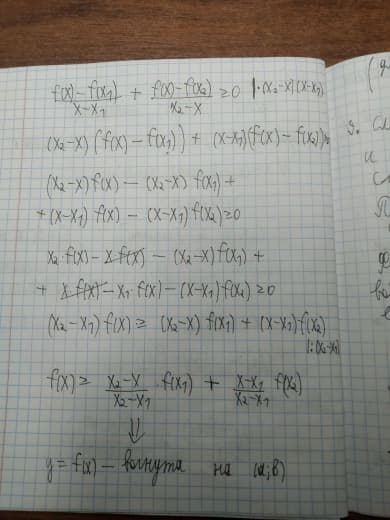 f(x)-f(x₁)/x-x₁ + f(x)-f(x₂)/x₂-x ≥0 |·(x₂-x)(x-x₁)
(x₂-x)(f(x)-f(x₁)) + (x-x₁)(f(x)-f(x₂))≥
(x₂-x)f(x) - (x₂-x) f(x₁) +
+ (x-x₁) f(x) - (x-x₁) f(x₂) ≥0
x₂·f(x) - x f(x) - (x₂-x) f(x₁) +
+ x f(x) - x₁·f(x) - (x-x₁) f(x₂) ≥0
(x₂-x₁) f(x) ≥ (x₂-x) f(x₁) + (x-x₁) f(x₂)
|:(x₂-x₁)
f(x) ≥ x₂-x/x₂-x₁ · f(x₁) + x-x₁/x₂-x₁ f(x₂)
⇓
y = f(x) - вогнута на (a;b)
9.
и